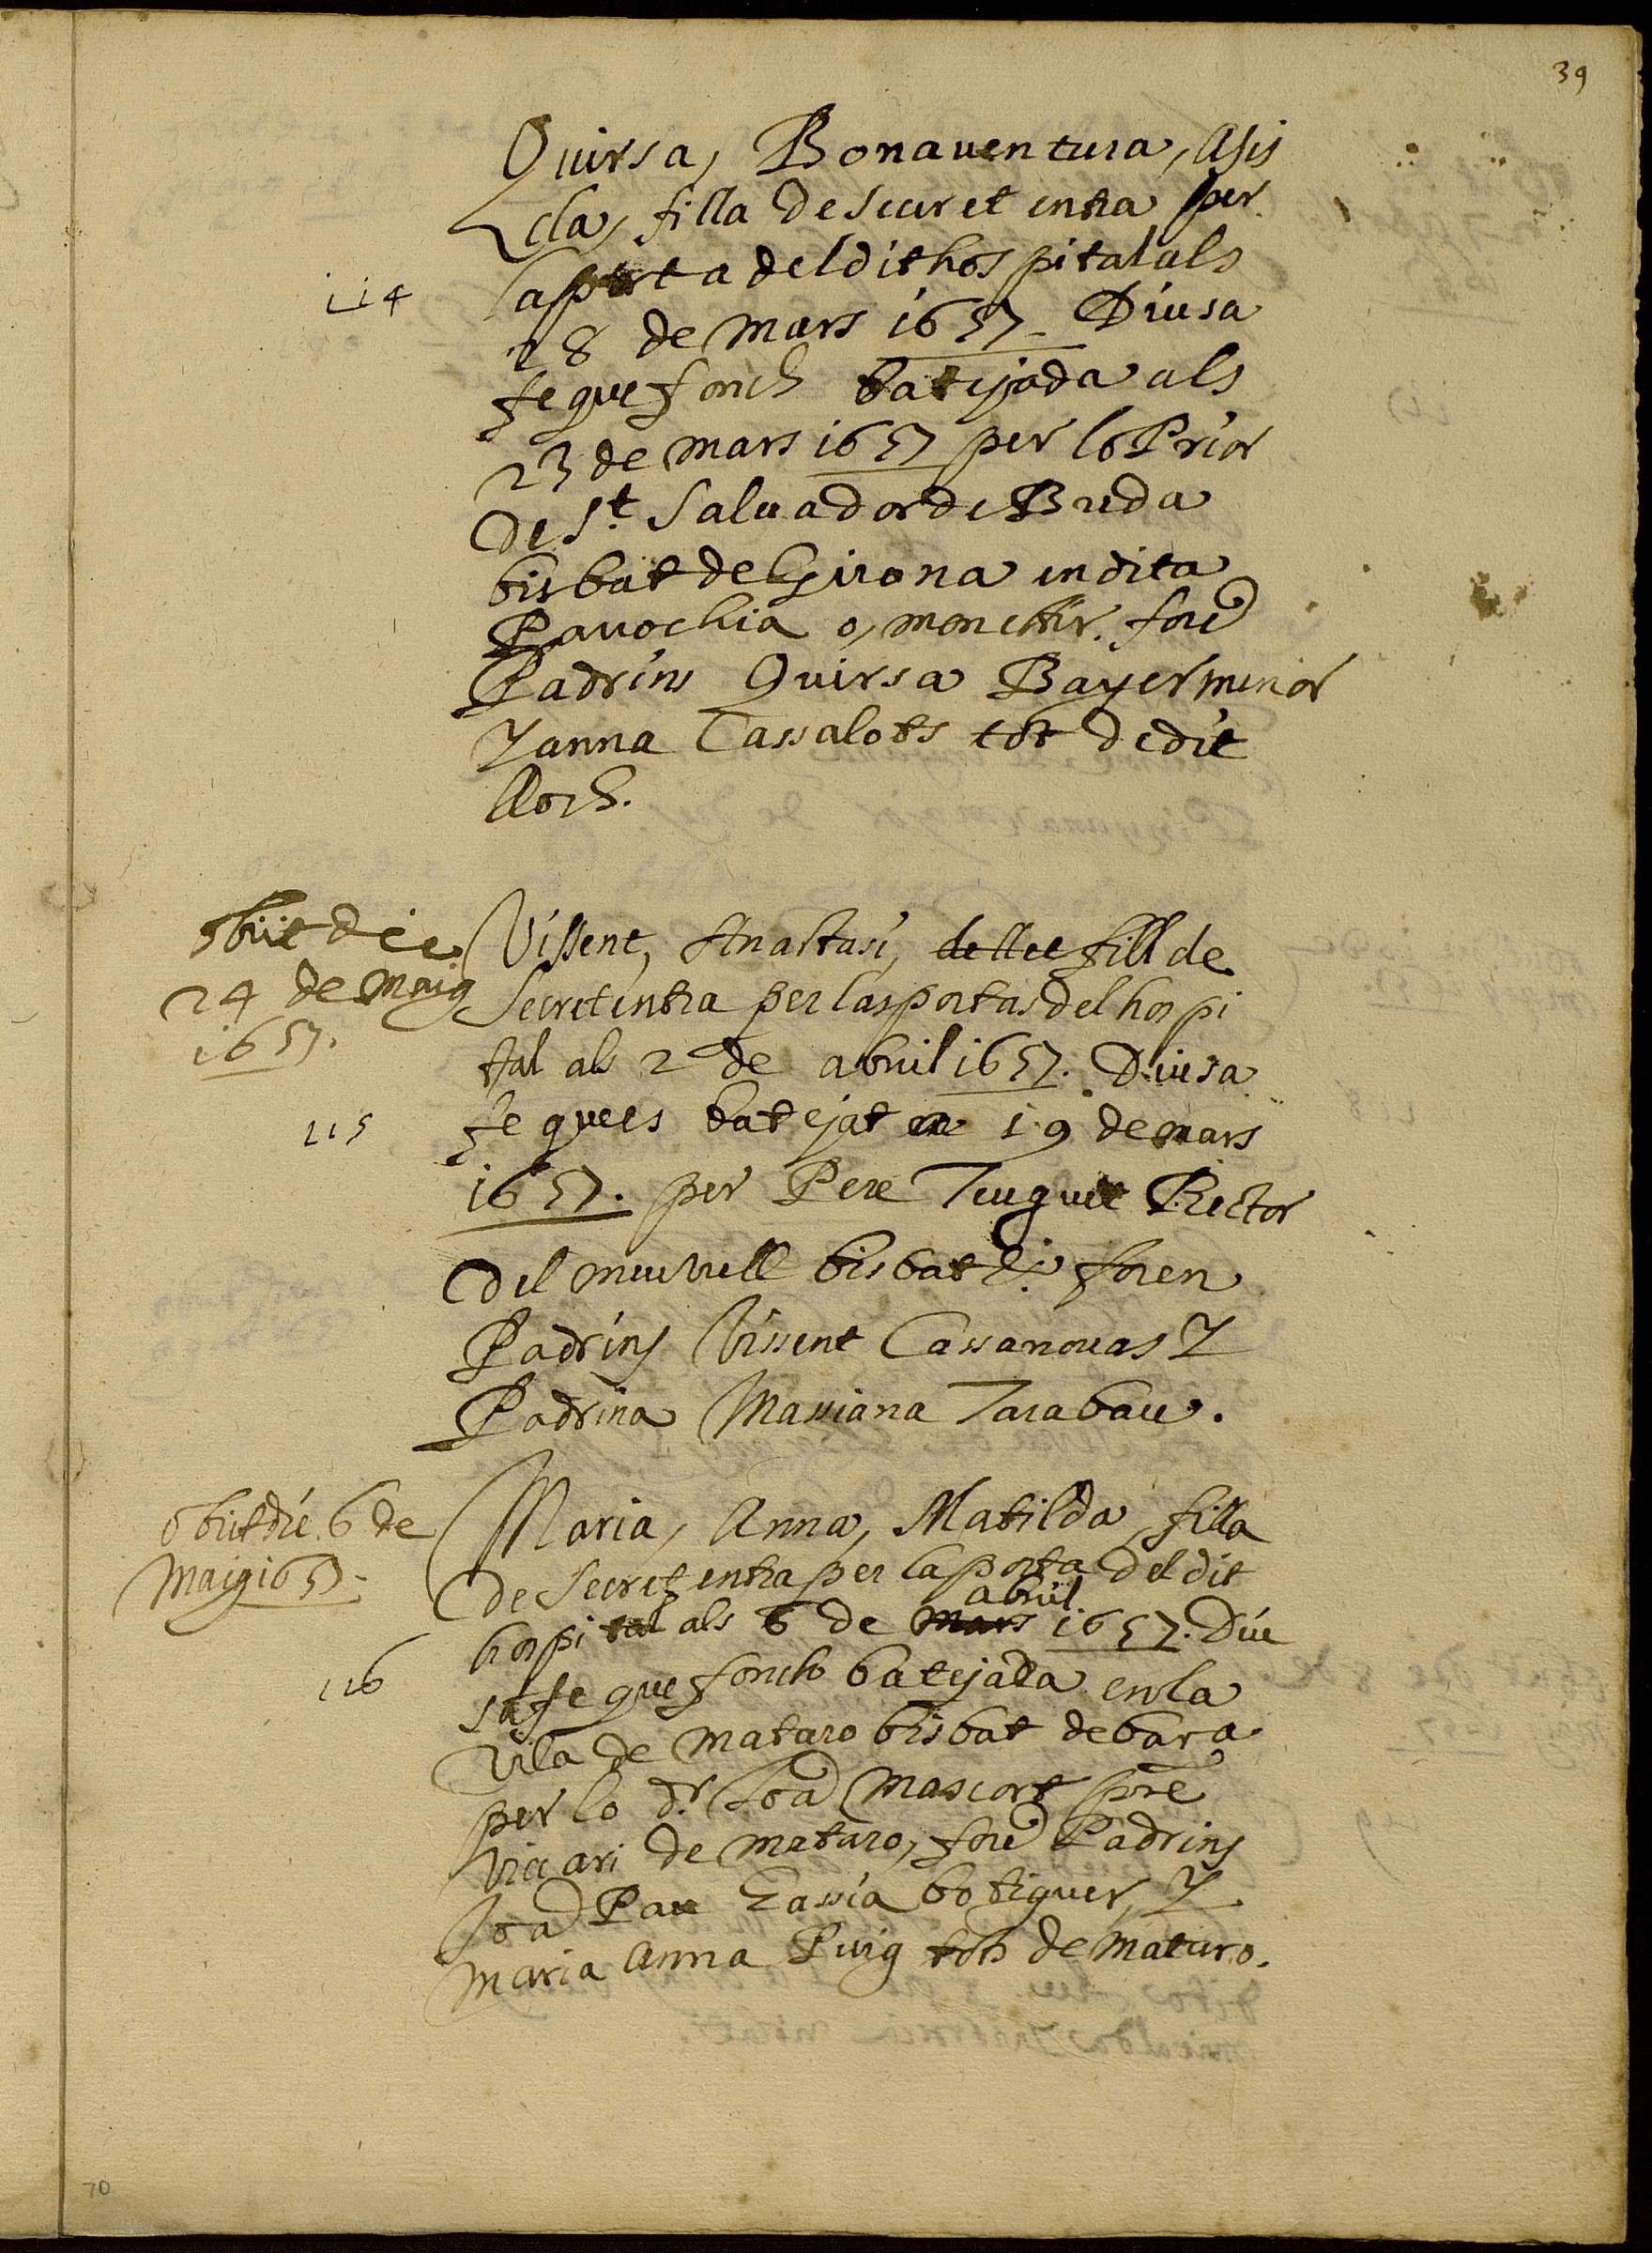 39
Quirsa, Bonaventura, Asis
cla, filla de secret entra per
114
la porta del dit hospital als
28 de mars 1657. Diu sa
fe que fonch batejada als
23 de mars 1657 per lo Prior
de St. Saluador de Breda
bisbat de Girona en dita
Parrochia o, monestir. forẽ
Padrins Quirsa Bayer menor
Y anna Cassalots tot de dit
lloch.
obiit die
24 de maig
1657.
Vissent, Anastasi, de llet fill de
Secret entra per las portas del hospi
tal als 2 de abril 1657. Diu sa
115
fe que es batejat a 19 de mars
1657. per Pere Rector
del bisbat foren
Padrins Vissent Cassanouas Y
Padrina Massiana Tarabau.
obiit die 6 de
Maig 1657.
Maria, Anna, Matilda, filla
de Secret entra per la porta del dit
abril
hospital als 6 de mars 1657. Diu
116
sa fe que fonch batejada en la
vila de mataro bisbat de bara
per lo dr. Joã Mascort pre
viccari de mataro, forẽ Padrins
Joã Pau botiguer, Y
Maria Anna Puig tots de mataro.
70